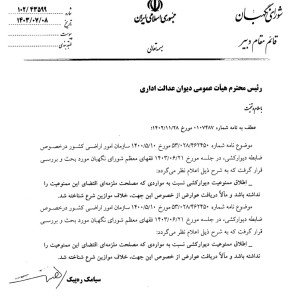 شورای نگهبان
قائم مقام دبیر
جمهوری اسلامی ایران
بسمه تعالی
شماره: ۱۰۲/۴۳۵۹۹
تاریخ: ۱۴۰۳/۰۷/۰۸
پیوست:
رئیس محترم هیأت عمومی دیوان عدالت اداری
با سلام و تحیت
عطف به نامه شماره ۰۱۰۷۴۸۷ مورخ ۱۴۰۲/۱۱/۲۸:
موضوع نامه شماره ۵۳/۰۲۸/۴۶۲۴۵۰ ۱۴۰۰/۵/۱۰ سازمان امور اراضی کشور درخصوص
ضابطه دیوارکشی، در جلسه مورخ ۱۴۰۳/۰۶/۲۱ فقهای معظم شورای نگهبان مورد بحث و بررسی
قرار گرفت که به شرح ذیل اعلام نظر می‌گردد:
ـ اطلاق ممنوعیت دیوارکشی نسبت به مواردی که مصلحت ملزمه‌ای اقتضای این ممنوعیت را
نداشته باشد و مآلاً دریافت عوارض از خصوص این جهت، خلاف موازین شرع شناخته شد.
موضوع نامه شماره ۵۳/۰۲۸/۴۶۲۴۵۰ ۱۴۰۰/۵/۱۰ سازمان امور اراضی کشور درخصوص
ضابطه دیوارکشی، در جلسه مورخ ۱۴۰۳/۰۶/۲۱ فقهای معظم شورای نگهبان مورد بحث و بررسی
قرار گرفت که به شرح ذیل اعلام نظر می‌گردد:
ـ اطلاق ممنوعیت دیوارکشی نسبت به مواردی که مصلحت ملزمه‌ای اقتضای این ممنوعیت را
نداشته باشد و مآلاً دریافت عوارض از خصوص این جهت، خلاف موازین شرع شناخته شد.
سیامک ره‌پیک